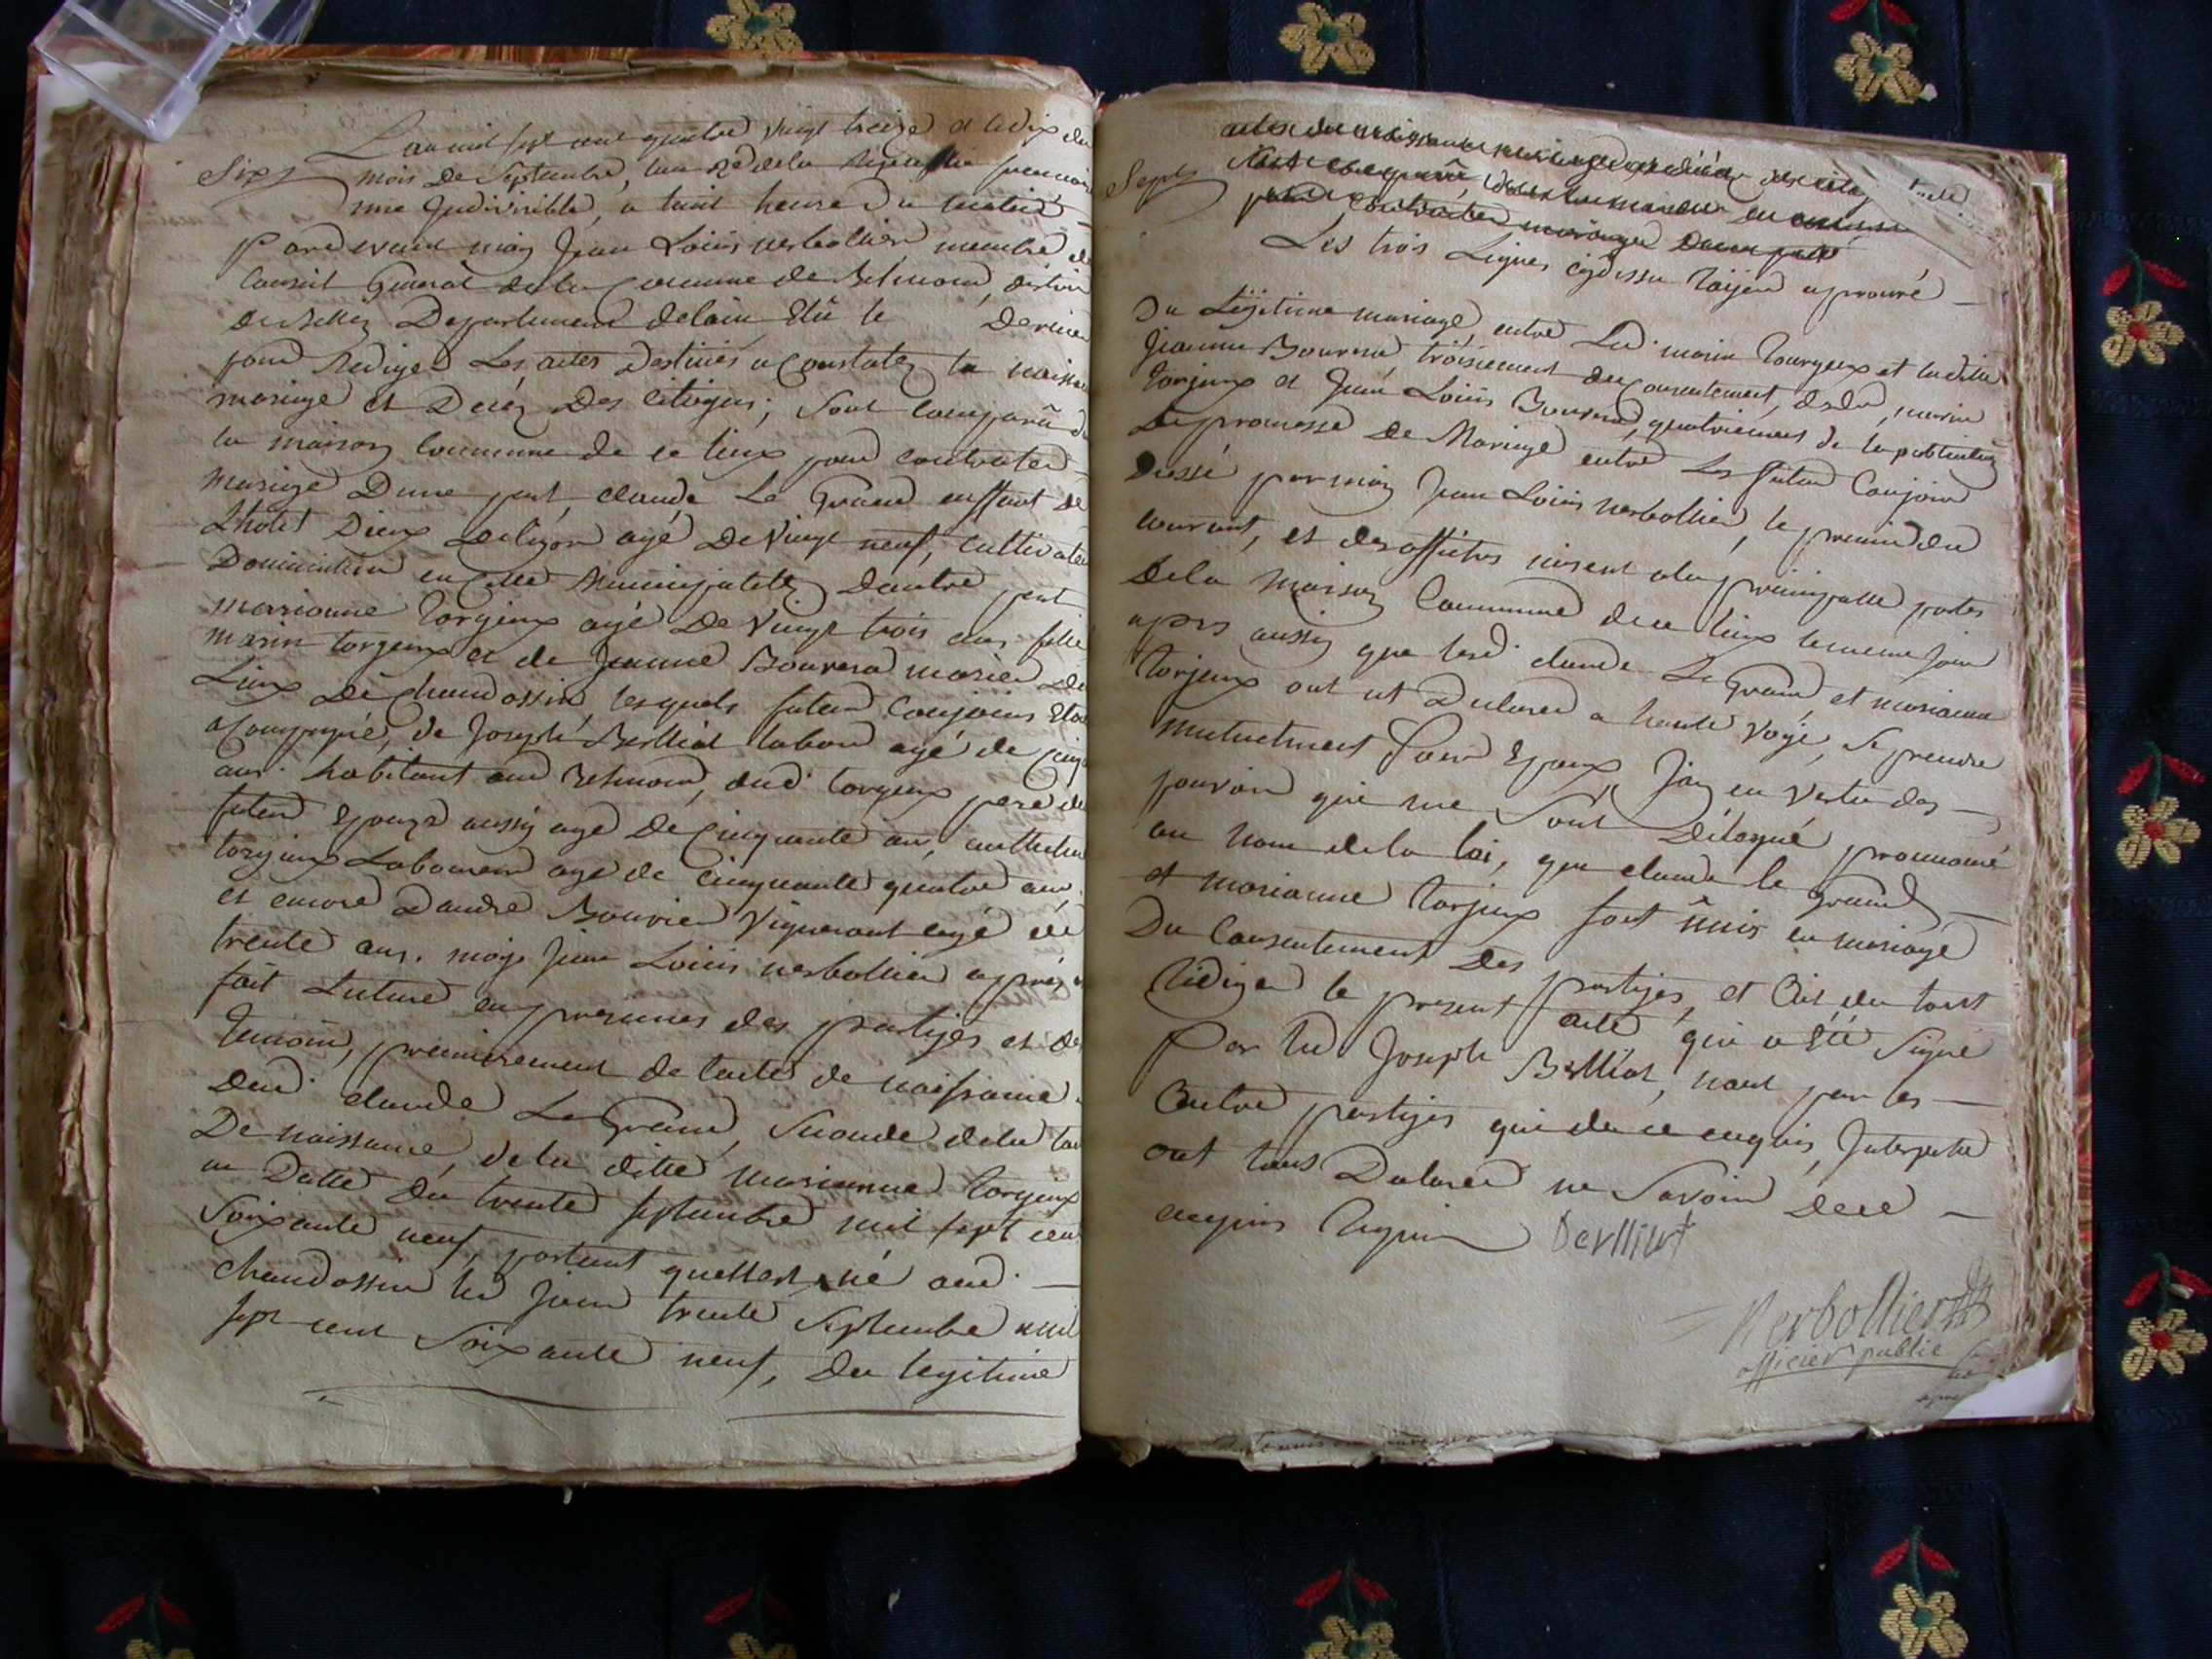 Sixs
L'an mil sept cent quatre vingt treize et le dix du
mois De Septembre, l'an 2e de la Republique francaise
une Indivisible, a huit heure Du matin
Pardevant moy Jean Loüis nerbollier membre du
Conseil General de la Commune de Belmond, district
Departement delain Elû le Dernier
pour Rediger Les actes Destinés a Constater la naissance
mariage et Decéz Des Citoyens; sont Comparû dans
la maison Commune de ce lieux pour contracter
mariage Dune part, claude Le Grand enffant De
Lhotel Dieux De Lÿon agé De Vingt neuf, Cultivateur
en cette Municipalité Dautre part
marianne Torgeux agé De Vingt trois ans fille
marin torgeux et de Jeanne Bouverd mariés Du
Lieux De Chandossin lesquels futur Conjoins Etoi
acompagné, de Joseph Berlliat labour agé de Cinq
ans habitant aud Belmond, dud torgeux pere de
futur Epouze aussy agé De Cinquante an,
torgeux Laboureur agé de Cinquante quatre ans,
et encore Dandre Bouvier Vigneront eagé de
trente ans. moy Jean Loüis nerbollier après
fait Lecture en presences des partÿes et des
temoin, premierement de lacte de naissance
Dud. claude Le Grand, Seconde de la
De naissance, de la ditte marianne torgeux
en Datte Du trente septembre mil sept cent
Soixante neuf, portant quelle est né aud.
chandossin led jour trente Septembre mil
sept cent Soixante neuf, Du legitime
Sept
actes de naissance mariage
pour Contracter mariage Dune part
Les trois Lignes cÿ dessu raÿée aprouvé
Du Légitime mariage entre Led. marin torgeux et laditte
Jeanne Bouverd troisiement du Consentement, dudu, marin
torjeux et Jean Loüis Bouverd, quatriemement de la publication
De promesse De Mariage entre Les futur Conjoins
Dressé par moy Jean Loüis nerbollier, le premier du
courant, et des affiches misent a la principalle porte
De la Maison Commune de ce lieux le meme jour
apres aussy que lesd. claude Le Grand, et marianne
Torjeux ont ut Declarer a haute Voÿe, se prendre
Mutuelment Pour Epoux, Jay en Vertu des
pouvoir qui me Sont Délégué prononcé
au nom de la loi, que claude le Grand
et marianne Torjeux sont ûnis en mariage
Du Consentement Des partÿes, et Ait du tout
Rediger le present acte qui a Eté Signé
Par led Joseph Berlliat, nont par les
autre partÿes qui de ce enquis, Interpellé
ont tous Declarer ne Savoir Dece
enquis Requis Berlliat
Nerbollier
officier public